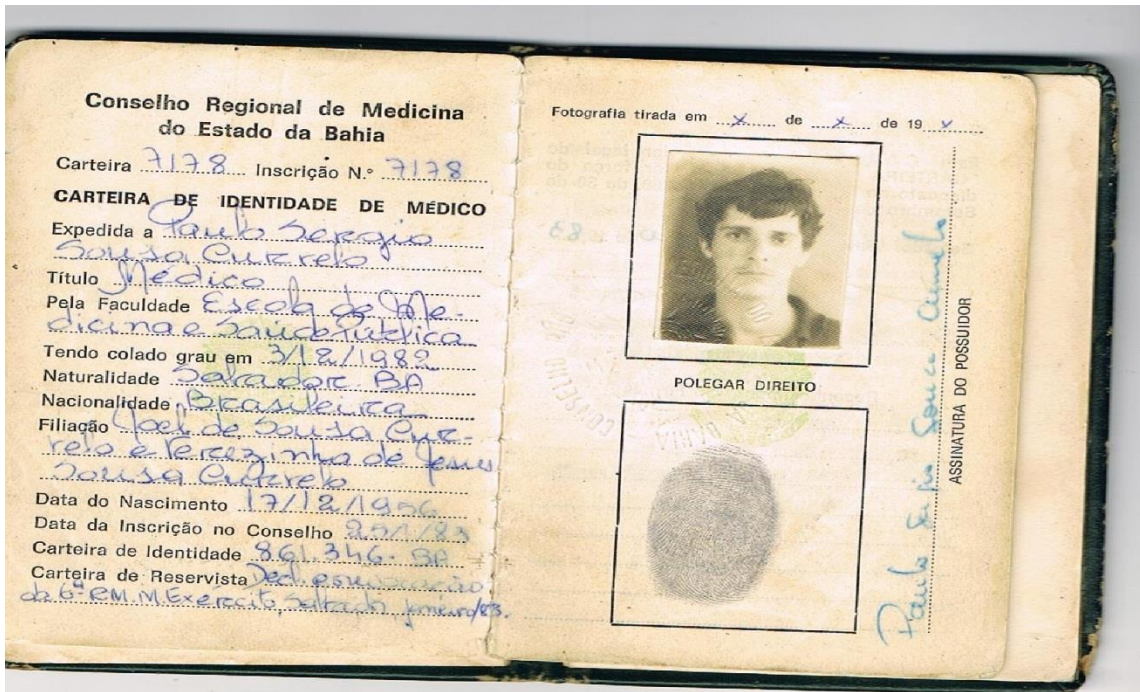 Conselho Regional de Medicina
do Estado da Bahia
Carteira 7178 Inscrição N.º 7178
CARTEIRA DE IDENTIDADE DE MÉDICO
Expedida a Paulo Sergio
Sousa Currelo
Título Médico
Pela Faculdade Escola de Me-
dicina e Saúde Pública
Tendo colado grau em 3/12/1982
Naturalidade Salvador BA
Nacionalidade Brasileira
Filiação Joel de Sousa Cur-
relo e Terezinha de Jesus
Sousa Currelo
Data do Nascimento 17/12/1956
Data da Inscrição no Conselho 25/1/83
Carteira de Identidade 861.346- BA
Carteira de Reservista Decl.
da 6ª RM. M. Exército, Salvador janeiro/83.
Fotografia tirada em x de x de 19 x
POLEGAR DIREITO
ASSINATURA DO POSSUIDOR
Paulo Sergio Sousa